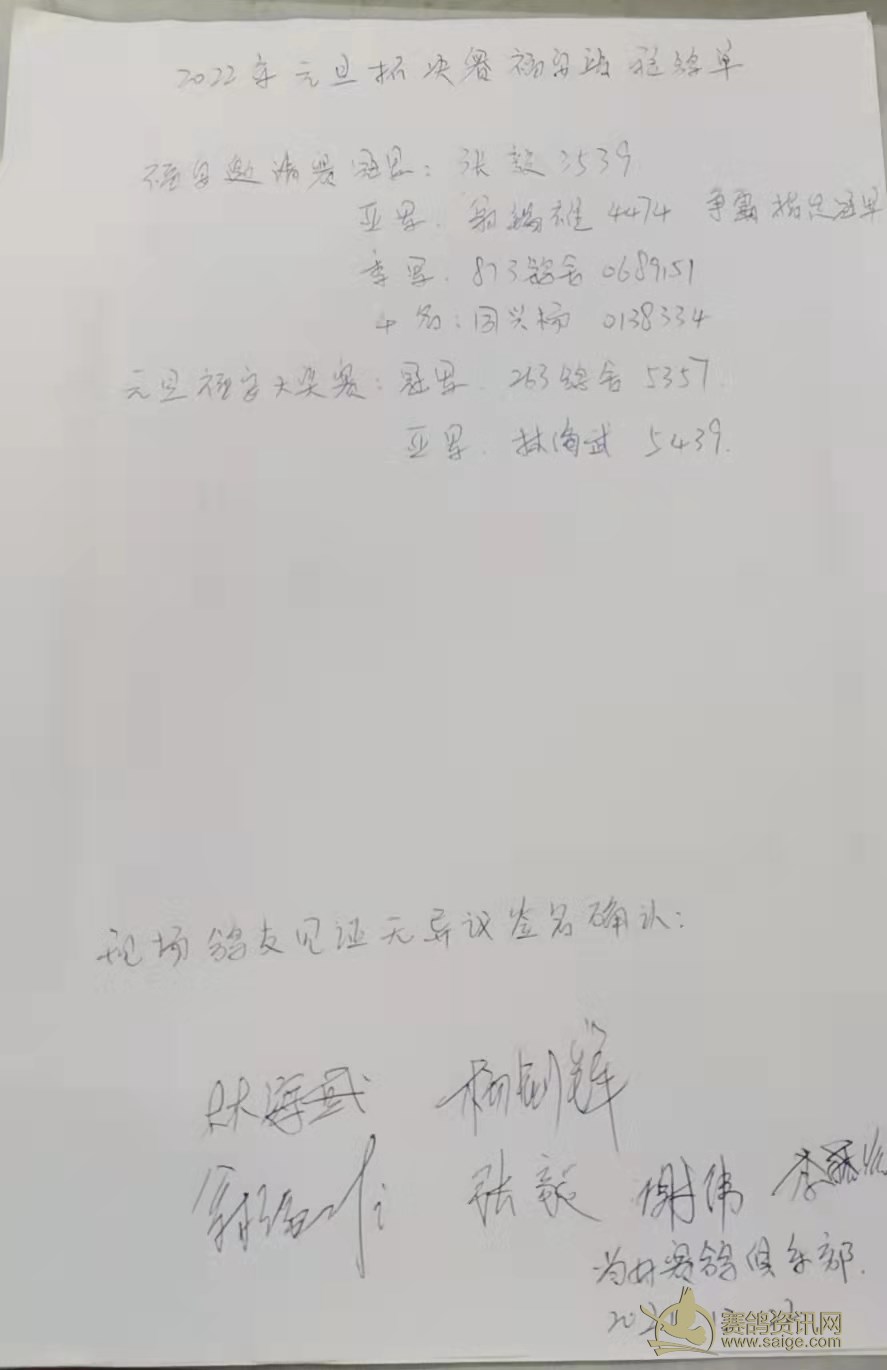 2022年元旦杯决赛 鸽单
邀请赛冠军：张毅3539
亚军. 4474 争霸指定冠军
季军. 873鸽舍0689151
4名：国兴杨 0138334
元旦 大奖赛：冠军. 263鸽舍5357.
亚军. 林海武 5439.
现场鸽友见证无异议签名确认：
林海武 杨剑辉
张毅 谢伟 李
赛鸽俱乐部.
赛鸽资讯网
www.saige.com